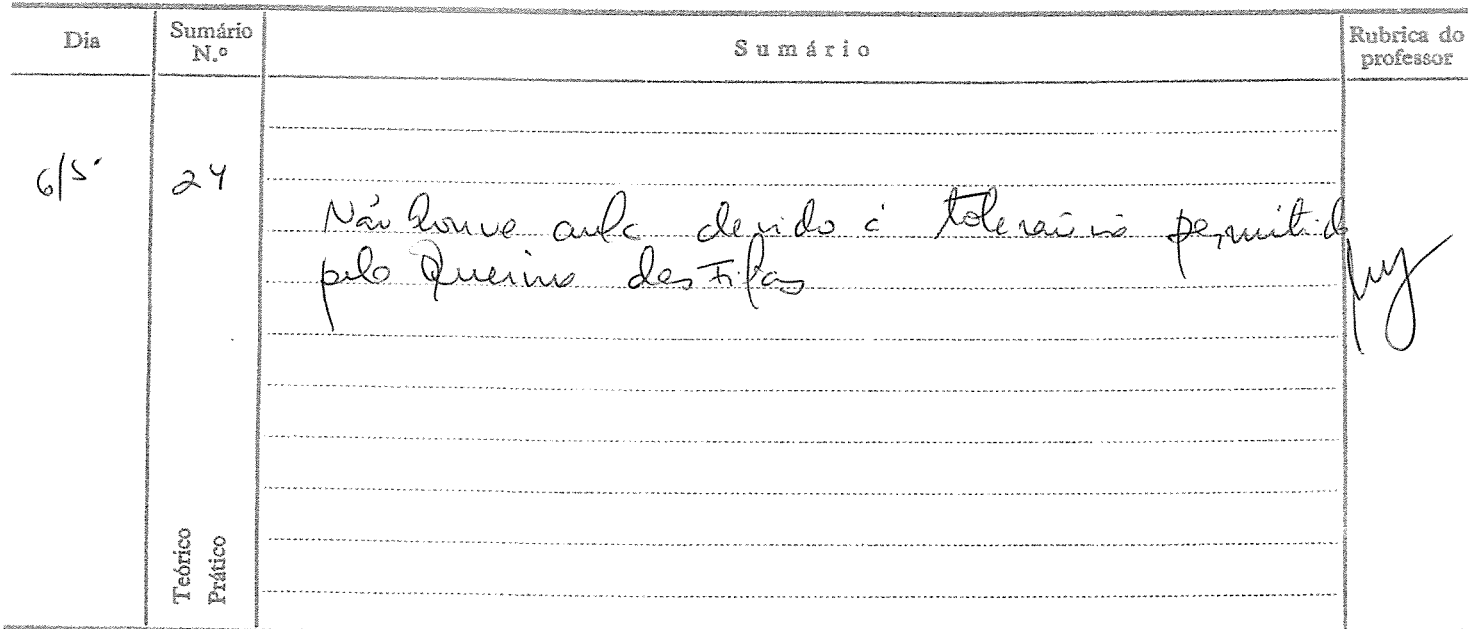 Dia
Sumário
N.º
Sumário
Rubrica do
professor
6/5
24
Não houve aula devido à tolerância permitida
pela Queima das Fitas
Teórico
Prático